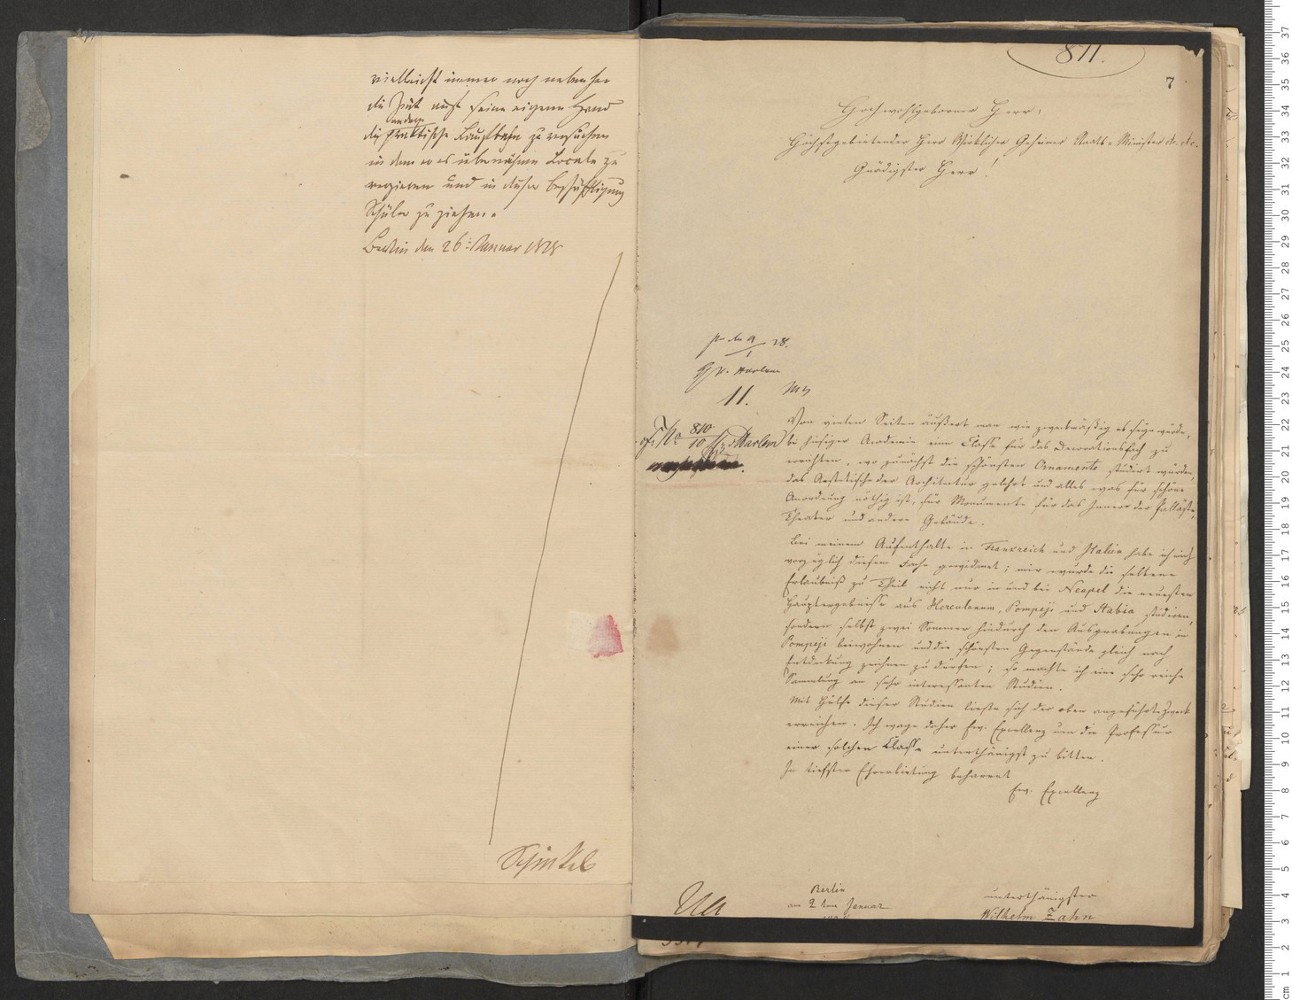 vielleicht immer noch nebenher
die Zeit auf seine eigene Hand
die praktische Laufbahn zu versuchen
indem er es übernähme Locale zu
verzieren und in dieser Beschäftigung
Schüler zu ziehen.
Berlin den 26t Januar 1828
Schinkel
811.
7
Hochwohlgeborner Herr,
Höchstgebietender Herr Wirklicher Geheimer Staats-Minister etc. etc.
Gnädigster Herr!
11.
Von vielen Seiten äußert man wie zweckmäßig es seyn würde,
bei hiesiger Academie eine Classe für das Decorationsfach zu
errichten, wo zunächst die schönsten Ornamente studirt würden,
das Aestetische der Architectur gelehrt und alles was für schöne
Anordnung nöthig ist, für Monumente für das Innere der Palläste,
Theater und andere Gebäude.
Bei meinem Aufenthalte in Frankreich und Italien habe ich mich
vorzüglich diesem Fache gewidmet; mir wurde die seltene
Erlaubniß zu Theil nicht nur in und bei Neapel die neuesten
Hauptergebnisse aus Herculanum, Pompeji und Stabia studiren,
sondern selbst zwei Sommer hindurch den Ausgrabungen in
Pompeji beiwohnen und die schönsten Gegenstände gleich nach
Entdeckung zeichnen zu dürfen; so machte ich eine sehr reiche
Sammlung an sehr interessanten Studien.
Mit Hülfe dieser Studien ließe sich der oben angeführte Zweck
erreichen. Ich wage daher Ew. Excellenz um die Professur
einer solchen Classe unterthänigst zu bitten.
In tiefster Ehrerbietung beharret
Ew. Excellenz
Berlin
am 2ten Januar
unterthänigster
Wilhelm Zahn